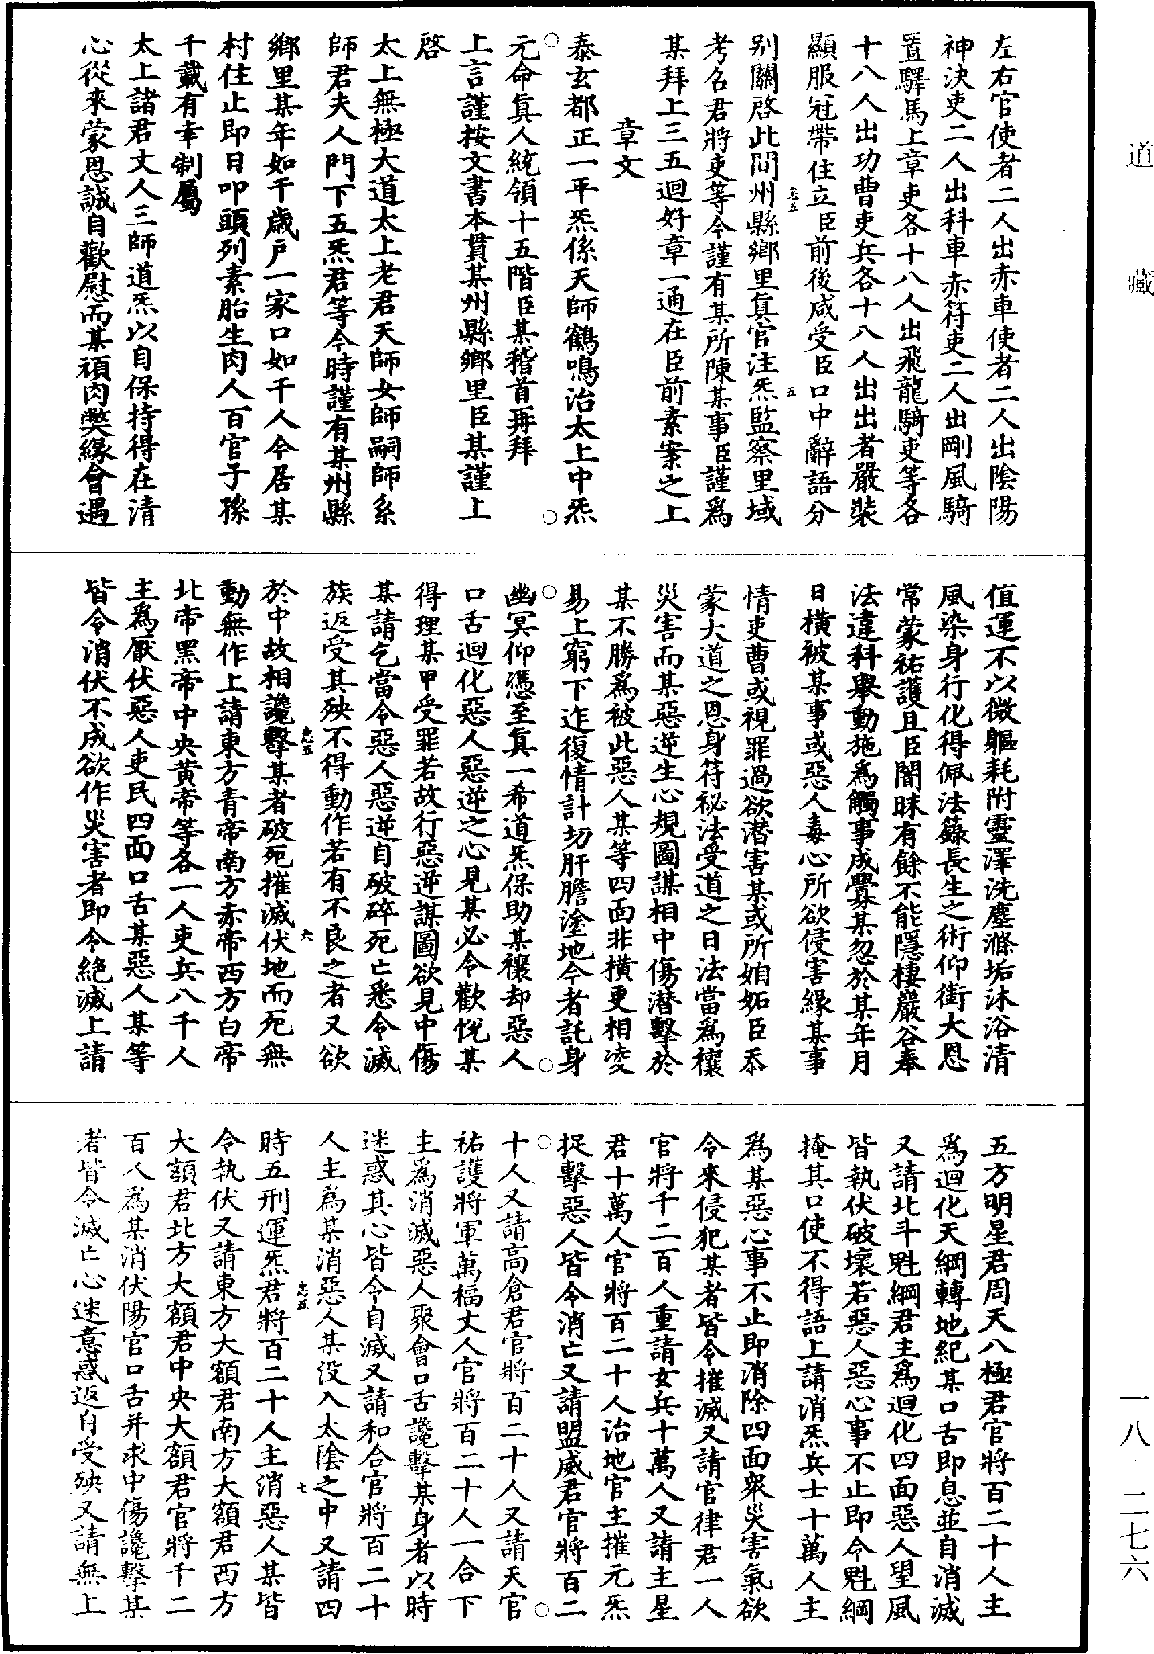 道藏
左右官使者二人出赤車使者二人出陰陽
神決吏二人出科車赤符吏二人出剛風騎
置驛馬上章吏各十八人出飛龍騎吏等各
十八人出功曹吏兵各十八人出出者嚴裝
顯服冠帶住立臣前後咸受臣口中辭語分
別關啓此間州縣鄉里真官注炁監察里域
考名君將吏等今謹有某所陳某事臣謹為
某拜上三五迴好章一通在臣前素案之上
章文
泰玄都正一平炁係天師鶴鳴治太上中炁
元命真人統領十五階臣某稽首再拜
上言謹按文書本貫某州縣鄉里臣某謹上
啓
太上無極大道太上老君天師女師嗣師系
師君夫人門下五炁君等今時謹有某州縣
鄉里某年如千歲戶一家口如千人今居某
村住止即日叩頭列素胎生肉人百官子孫
千載有幸制屬
太上諸君丈人三師道炁以自保持得在清
心從來蒙恩誠自歡慰而某頑肉弊緣會遇
值運不以微軀耗附靈澤洗塵滌垢沐浴清
風染身行化得佩法籙長生之術仰銜大恩
常蒙祐護且臣闇昧有餘不能隱棲巖谷奉
法違科舉動施為觸事成釁某忽於某年月
日橫被某事或惡人毒心所欲侵害緣某事
情吏曹或視罪過欲潛害某或所姻妬臣忝
蒙大道之恩身符祕法受道之日法當為禳
災害而某惡逆生心規圖謀相中傷潛擊於
某不勝為被此惡人某等四面非橫更相凌
易上窮下迮復情計切肝膽塗地今者託身
幽冥仰憑至真一希道炁保助某禳却惡人
口舌迴化惡人惡逆之心見某必令歡悅某
得理某甲受罪若故行惡逆謀圖欲見中傷
某請乞當令惡人惡逆自破碎死亡悉令滅
族返受其殃不得動作若有不良之者又欲
於中故相讒擊某者破死摧滅伏地而死無
動無作上請東方青帝南方赤帝西方白帝
北帝黑帝中央黃帝等各一人吏兵八千人
主為厭伏惡人吏民四面口舌某惡人某等
皆令消伏不成欲作災害者即令絕滅上請
五方明星君周天八極君官將百二十人主
為迴化天綱轉地紀某口舌即息並自消滅
又請北斗魁綱君主為迴化四面惡人望風
皆執伏破壞若惡人惡心事不止即令魁綱
掩其口使不得語上請消炁兵士十萬人主
為某惡心事不止即消除四面眾災害氣欲
令來侵犯某者皆令摧滅又請官律君一人
官將千二百人重請女兵十萬人又請主星
君十萬人官將百二十人治地官主摧元炁
捉擊惡人皆令消亡又請盟威君官將百二
十人又請高倉君官將百二十人又請天官
祐護將軍萬福丈人官將百二十人一合下
主為消滅惡人聚會口舌讒擊某身者以時
迷惑其心皆令自滅又請和合官將百二十
人主為某消惡人某沒入太陰之中又請四
時五刑運炁君將百二十人主消惡人某皆
令執伏又請東方大額君南方大額君西方
大額君北方大額君中央大額君官將千二
百人為某消伏陽官口舌并求中傷讒擊某
者皆令滅亡心迷意惑返自受殃又請無上
忠五
五
忠五
六
忠五
七
一八·二七六